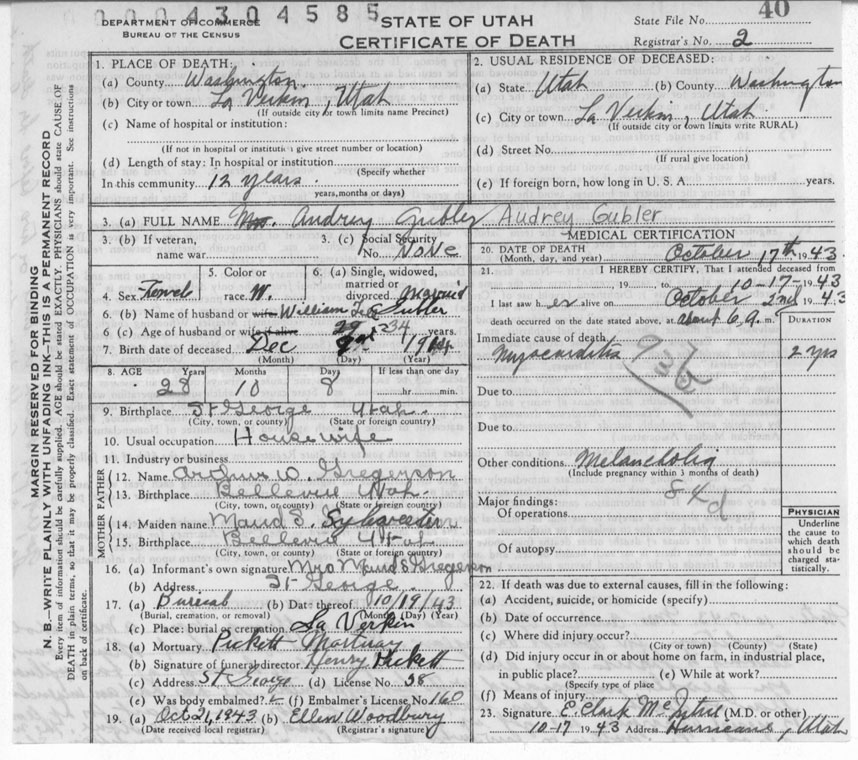 0 0 0 0 4 3 0 4 5 8 5
DEPARTMENT OF COMMERCE
BUREAU OF THE CENSUS
STATE OF UTAH
CERTIFICATE OF DEATH
State File No. 40
Registrar's No. 2
MARGIN RESERVED FOR BINDING
N. B.—WRITE PLAINLY WITH UNFADING INK—THIS IS A PERMANENT RECORD
Every item of information should be carefully supplied. AGE should be stated EXACTLY. PHYSICIANS should state CAUSE OF
DEATH in plain terms, so that it may be properly classified. Exact statement of OCCUPATION is very important. See instructions
on back of certificate.
1. PLACE OF DEATH:
(a) County Washington
(b) City or town La Verkin, Utah
(If outside city or town limits name Precinct)
(c) Name of hospital or institution:
(If not in hospital or institution give street number or location)
(d) Length of stay: In hospital or institution
(Specify whether
In this community 12 years
years, months or days)
2. USUAL RESIDENCE OF DECEASED:
(a) State Utah (b) County Washington
(c) City or town La Verkin, Utah
(If outside city or town limits write RURAL)
(d) Street No.
(If rural give location)
(e) If foreign born, how long in U. S. A. years.
3. (a) FULL NAME Mrs. Audrey Gubler Audrey Gubler
3. (b) If veteran,
name war
3. (c) Social Security
No. None
4. Sex
5. Color or
race W.
6. (a) Single, widowed,
married or
divorced
6. (b) Name of husband or wife William Gubler
6. (c) Age of husband or wife if alive 34 years.
7. Birth date of deceased Dec 1914
(Month) (Day) (Year)
8. AGE Years Months Days If less than one day
28 10 8 hr. min.
9. Birthplace St George Utah
(City, town, or county) (State or foreign country)
10. Usual occupation Housewife
11. Industry or business
FATHER
12. Name Arthur W. Gregerson
13. Birthplace Bellevue Utah
(City, town, or county) (State or foreign country)
MOTHER
14. Maiden name Maud S. Sylvester
15. Birthplace Bellevue Utah
(City, town, or county) (State or foreign country)
16. (a) Informant's own signature Mrs Maud S Gregerson
(b) Address St George
17. (a) Bureal (b) Date thereof 10/19/43
(Burial, cremation, or removal) (Month) (Day) (Year)
(c) Place: burial or cremation La Verkin
18. (a) Mortuary Pickett Mortuary
(b) Signature of funeral director Henry Pickett
(c) Address St George (d) License No. 38
(e) Was body embalmed? (f) Embalmer's License No. 160
19. (a) Oct 21, 1943 (b) Ellen Woodbury
(Date received local registrar) (Registrar's signature)
MEDICAL CERTIFICATION
20. DATE OF DEATH October 17th 1943
(Month, day, and year)
21. I HEREBY CERTIFY, That I attended deceased from
, 19 to 10-17-1943
I last saw her alive on October 2nd, 1943
death occurred on the date stated above, at about 6 A. m.
DURATION
Immediate cause of death
Myocarditis 2 yrs
Due to
Due to
Other conditions Melancholia
(Include pregnancy within 3 months of death)
84d
Major findings:
Of operations
Of autopsy
PHYSICIAN
Underline
the cause to
which death
should be
charged sta-
tistically.
22. If death was due to external causes, fill in the following:
(a) Accident, suicide, or homicide (specify)
(b) Date of occurrence
(c) Where did injury occur?
(City or town) (County) (State)
(d) Did injury occur in or about home on farm, in industrial place,
in public place? (e) While at work?
(Specify type of place
(f) Means of injury
23. Signature E. Clark McIntire (M.D. or other)
10-17 1943 Address Hurricane, Utah